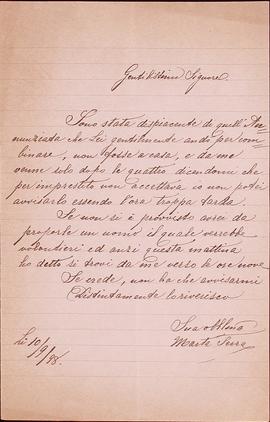 Gentilissimo Signore.
Sono stata dispiacente di quell'An-
nunziata che Lei gentilmente andò per com-
binare, non fosse a casa, e da me
venne solo dopo le quattro dicendomi che
per imprestito non accettava io non potei
avvisarlo essendo l'ora troppa tarda.
Se non si è provvisto avrei da
proporle un uomo il quale verrebbe
volontieri ed anzi questa mattina
ho detto si trovi da me verso le ore nove
Se crede, non ha che avvisarmi
Distintamente lo riverisco
Sua obbl.ma
Marta Serra
li 10/9/98.